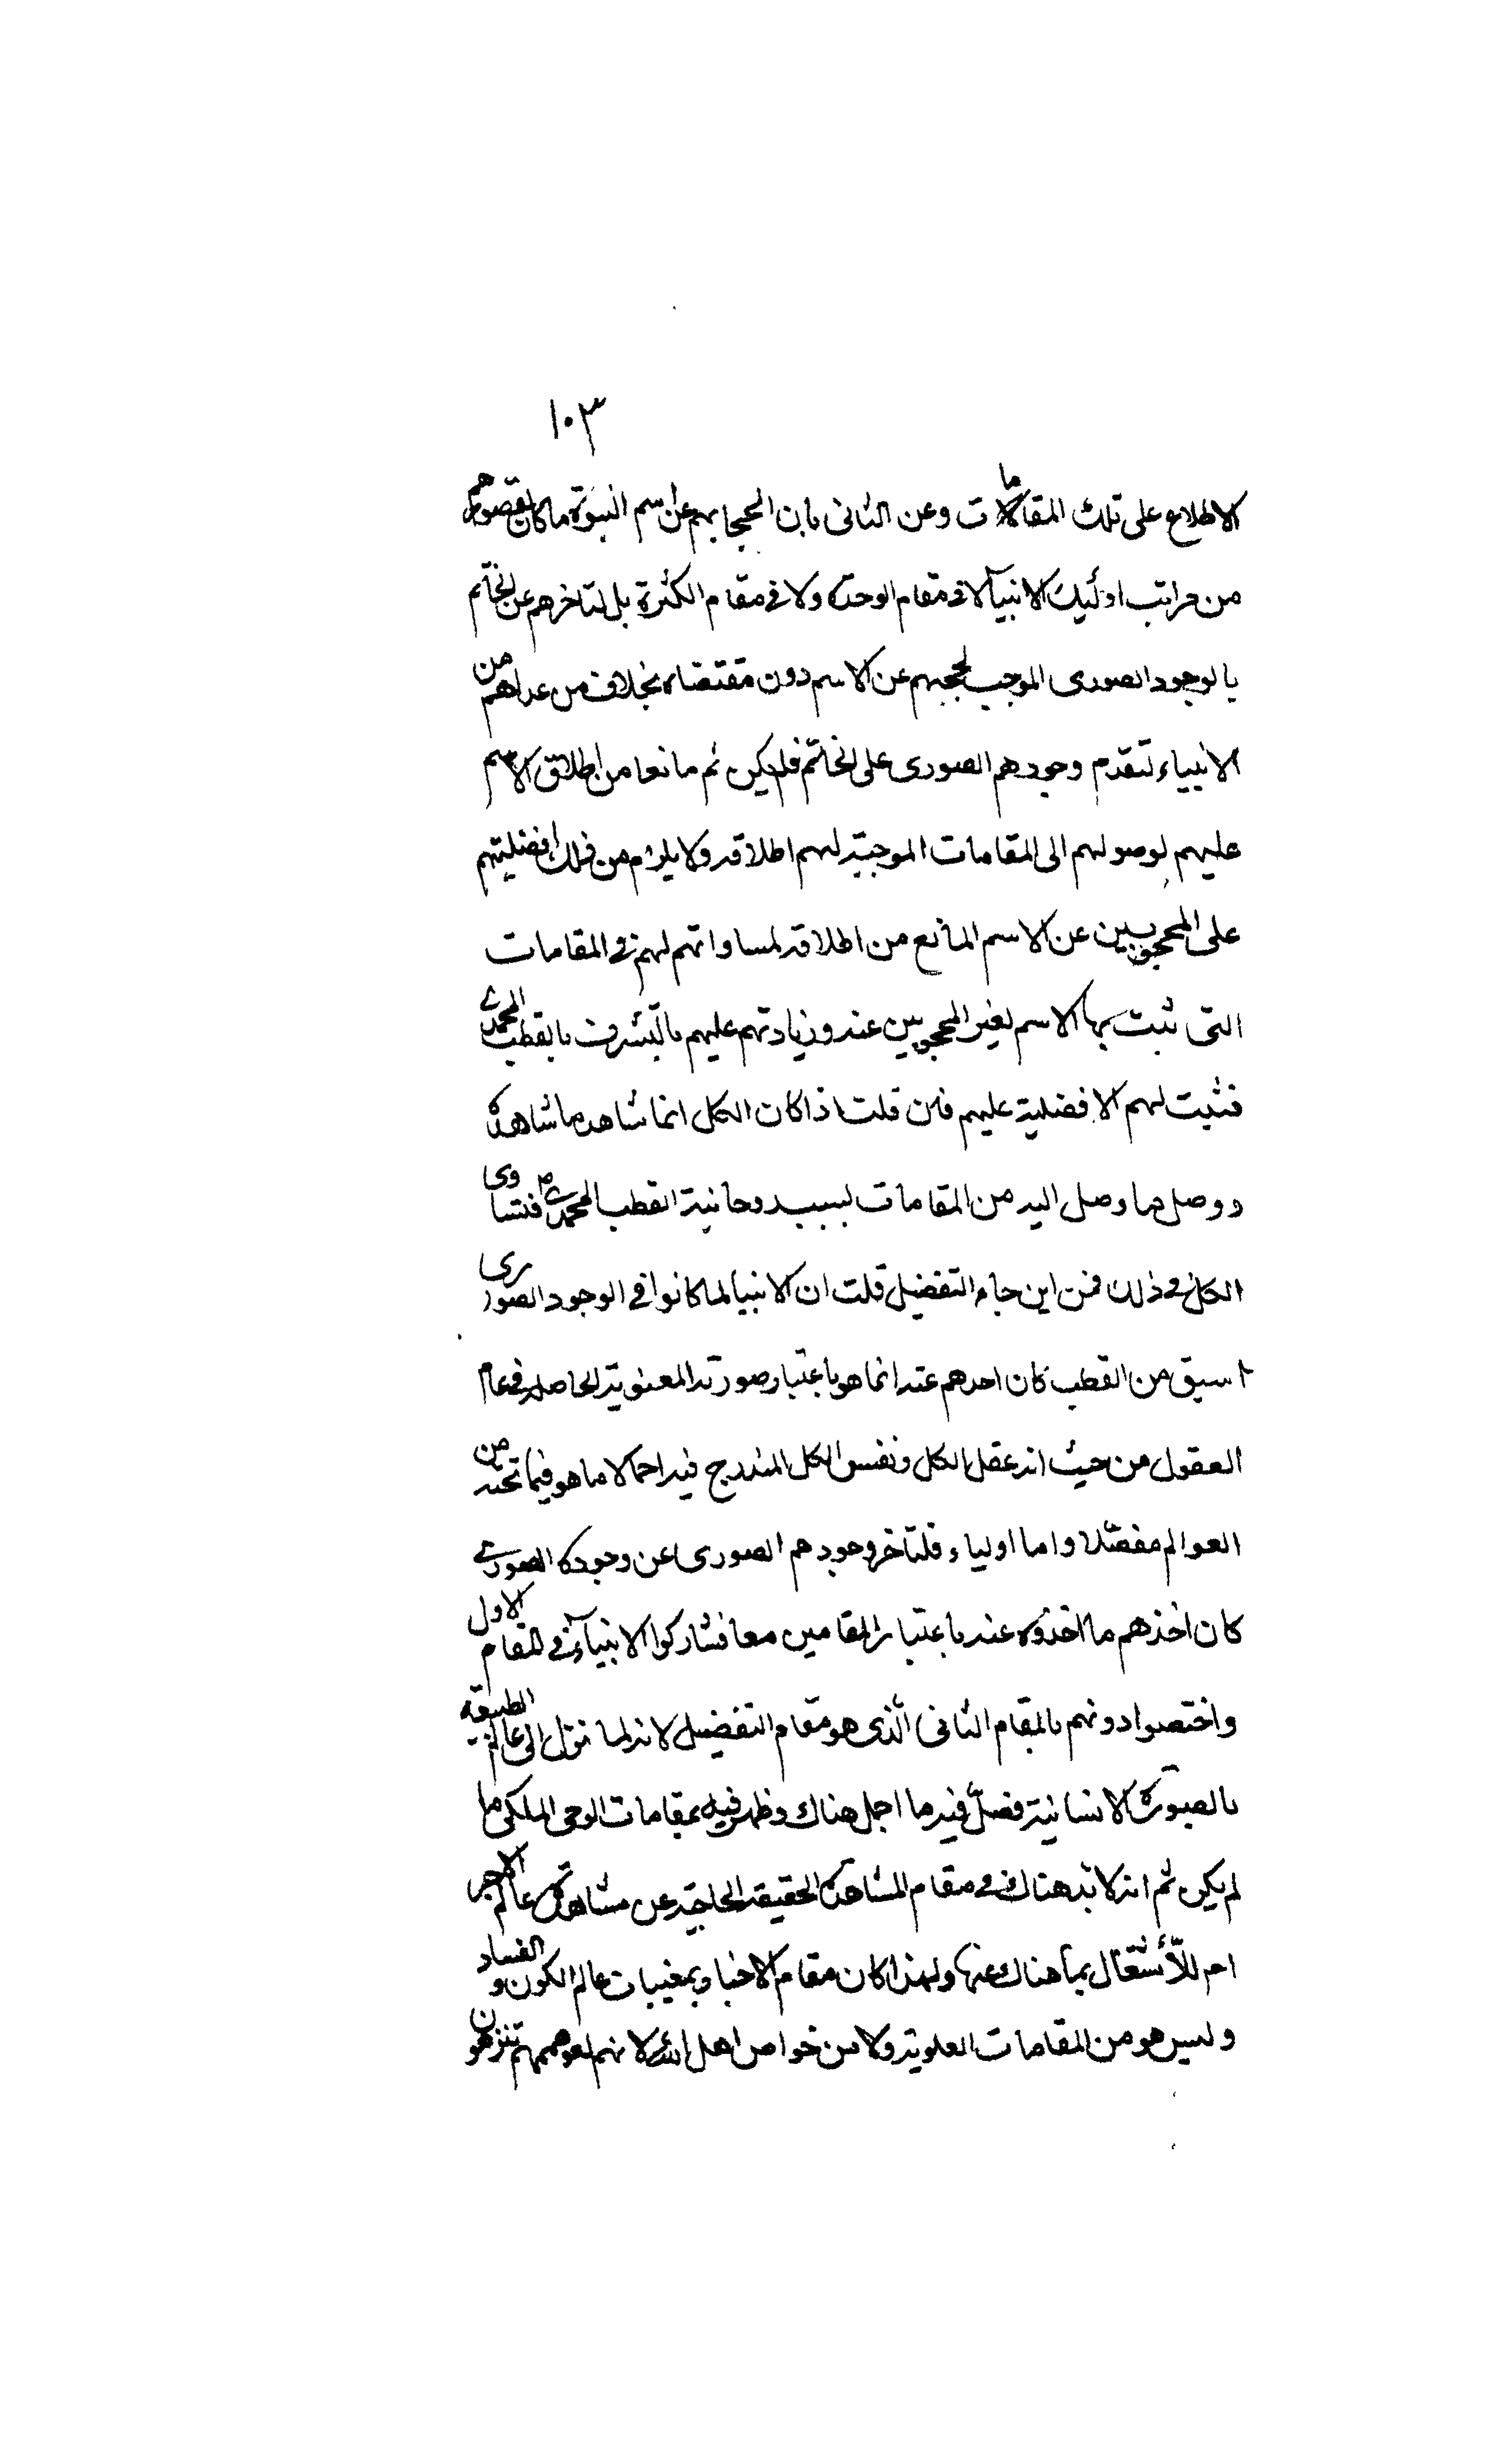 ١٠٣
الاطلاع على تلك المقامات وعن الثانى بان احتجابهم عن اسم النبوة ما كان لقصورهم
من مراتب اولئك الانبيآء لا فى مقام الوحدة ولا فى مقام الكثرة بل لتاخرهم عن الخاتم
بالوجود الصورى الموجب لحجبهم عن الاسم دون مقتضاه بخلاف من عداهم من
الانبياء لتقدم وجودهم الصورى على الخاتم فلم يكن ثم مانعا من اطلاق الاسم
عليهم لوصولهم الى المقامات الموجبة لهم اطلاقه ولا يلزم من ذلك افضليتهم
على المحجوبين عن الاسم المانع من اطلاقه لمساواتهم لهم فى المقامات
التى ثبت بها الاسم لغير المحجوبين عنه وزيادتهم عليهم بالتشرف بالقطب المحمدى
فثبت لهم الافضلية عليهم فان قلت اذا كان الكل انما شاهد ما شاهده
ووصل ما وصل اليه من المقامات بسبب روحانية القطب المحمدى م فتساوى
الكل فى ذلك فمن اين جاء التفضيل قلت ان الانبيا لما كانوا فى الوجود الصورى
اسبق من القطب كان اخذهم عنه انما هو باعتبار صورته المعنوية الحاصلة فى عالم
العقول من حيث انه عقل الكل ونفس الكل المندرج فيه اجمالا ما هو فيما تحته من
العوالم مفصّلا واما اولياء فلتاخر وجودهم الصورى عن وجوده الصورى
كان اخذهم ما اخذوه عنه باعتبار المقامين معا فشاركوا الانبيآء فى المقام الاول
واختصوا دونهم بالمقام الثانى الّذى هو مقام التفضيل لانه لما نزل الى عالم الطبيعة
بالصورة الانسانية فصّل فيه ما اجمل هناك وظهر فيه بمقامات الوحى الملكى ما
لم يكن ثم انه لابد هناك فى مقام المشاهدة الحقيقة الحاجبة عن مشاهدة عالم الاجر
ام للاشتغال بما هناك عنها ولهذا كان مقام الاخبار بمغيبات عالم الكون و الفساد
وليس هو من المقامات العلوية ولا من خواص اهل الله لانهم لعلو هممهم تنزهون